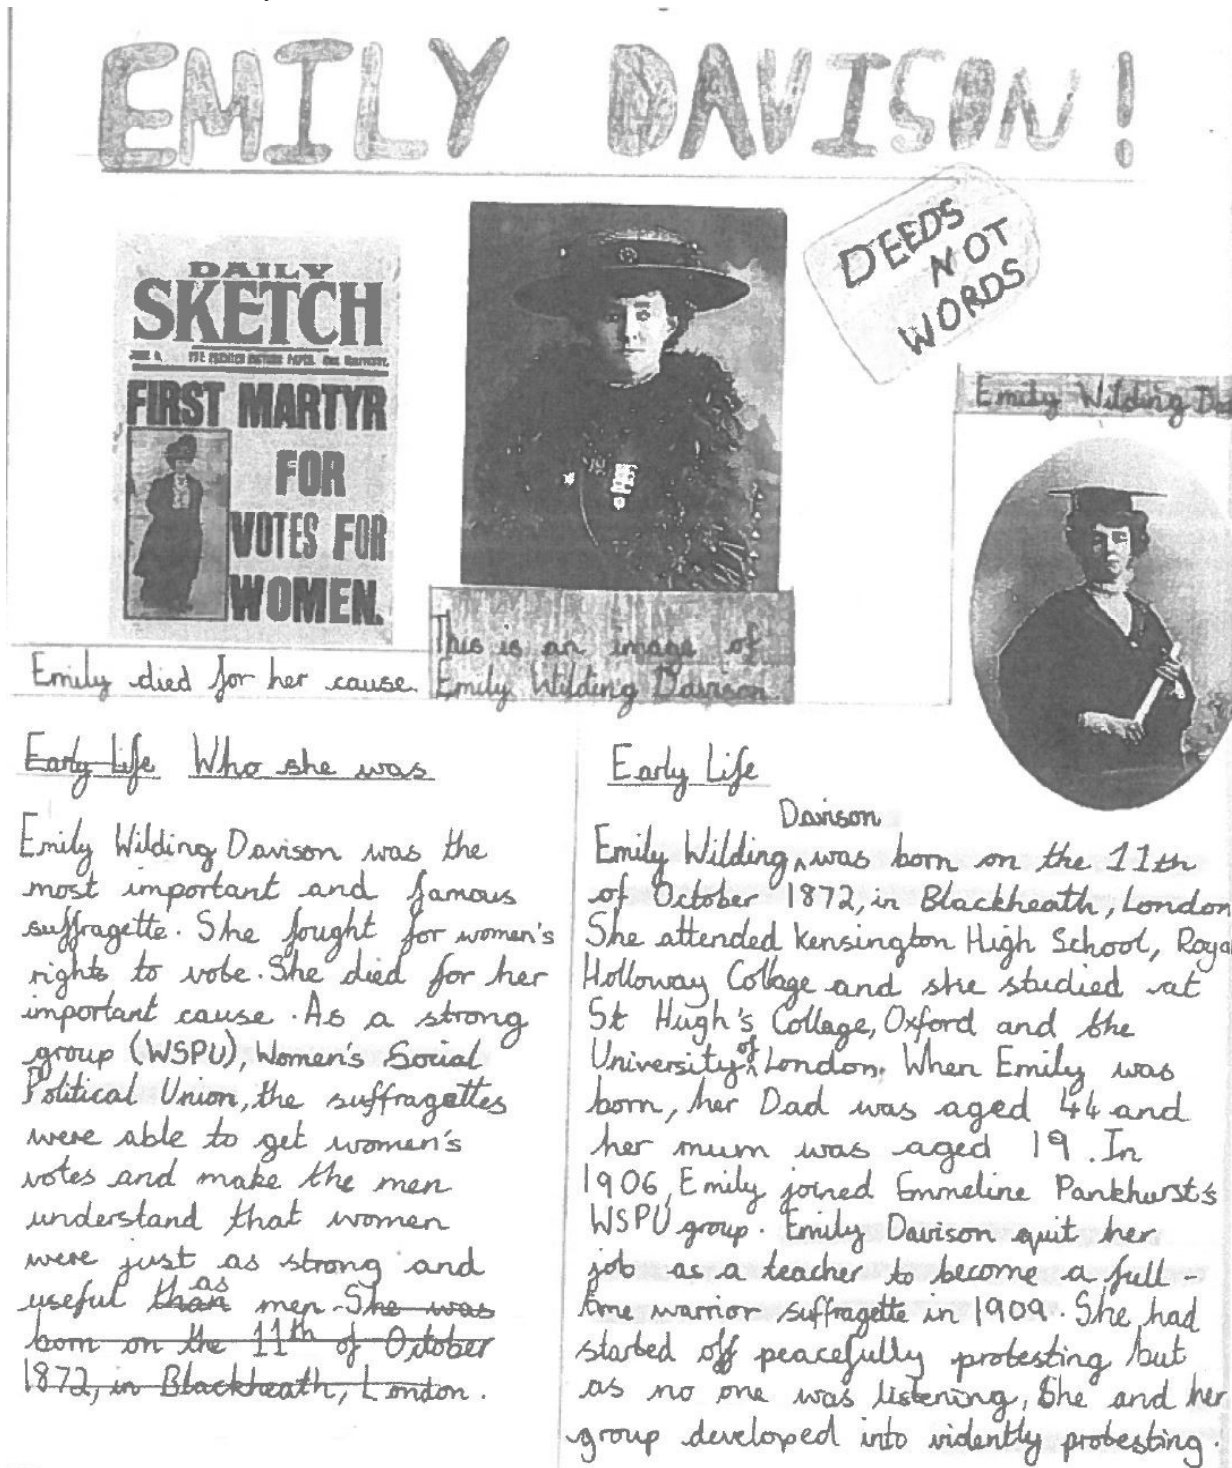 EMILY DAVISON!
DAILY
SKETCH
FIRST MARTYR
FOR
VOTES FOR
WOMEN.
DEEDS
NOT
WORDS
Emily Wilding
Emily died for her cause.
This is an image of
Emily Wilding Davison
Early Life Who she was
Emily Wilding Davison was the
most important and famous
suffragette. She fought for women's
rights to vote. She died for her
important cause. As a strong
group (WSPU), Women's Social
Political Union, the suffragettes
were able to get women's
votes and make the men
understand that women
were just as strong and
useful than as men. She was
born on the 11th of October
1872, in Blackheath, London.
Early Life
Emily Wilding Davison was born on the 11th
of October 1872, in Blackheath, London
She attended Kensington High School, Roya
Holloway Collage and she studied at
St Hugh's Collage, Oxford and the
University of London. When Emily was
born, her Dad was aged 44 and
her mum was aged 19. In
1906, Emily joined Emmeline Pankhurst's
WSPU group. Emily Davison quit her
job as a teacher to become a full-
time warrior suffragette in 1909. She had
started off peacefully protesting but
as no one was listening, She and her
group developed into violently protesting.